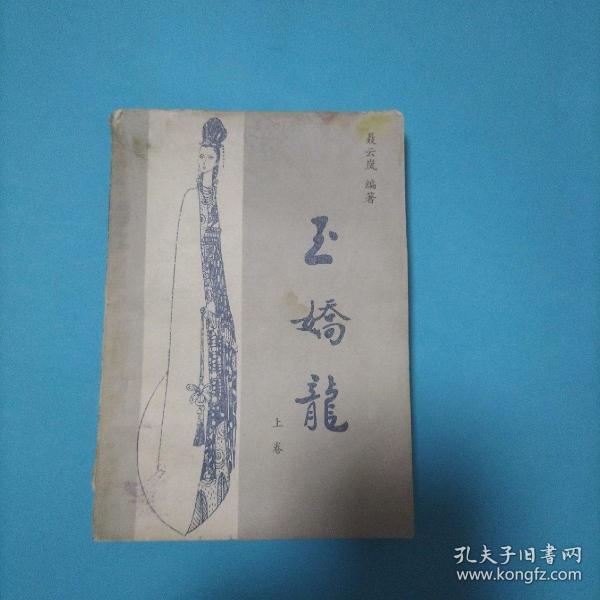 聂云岚 编著
玉嬌龍
上卷
孔夫子旧书网
www.kongfz.com